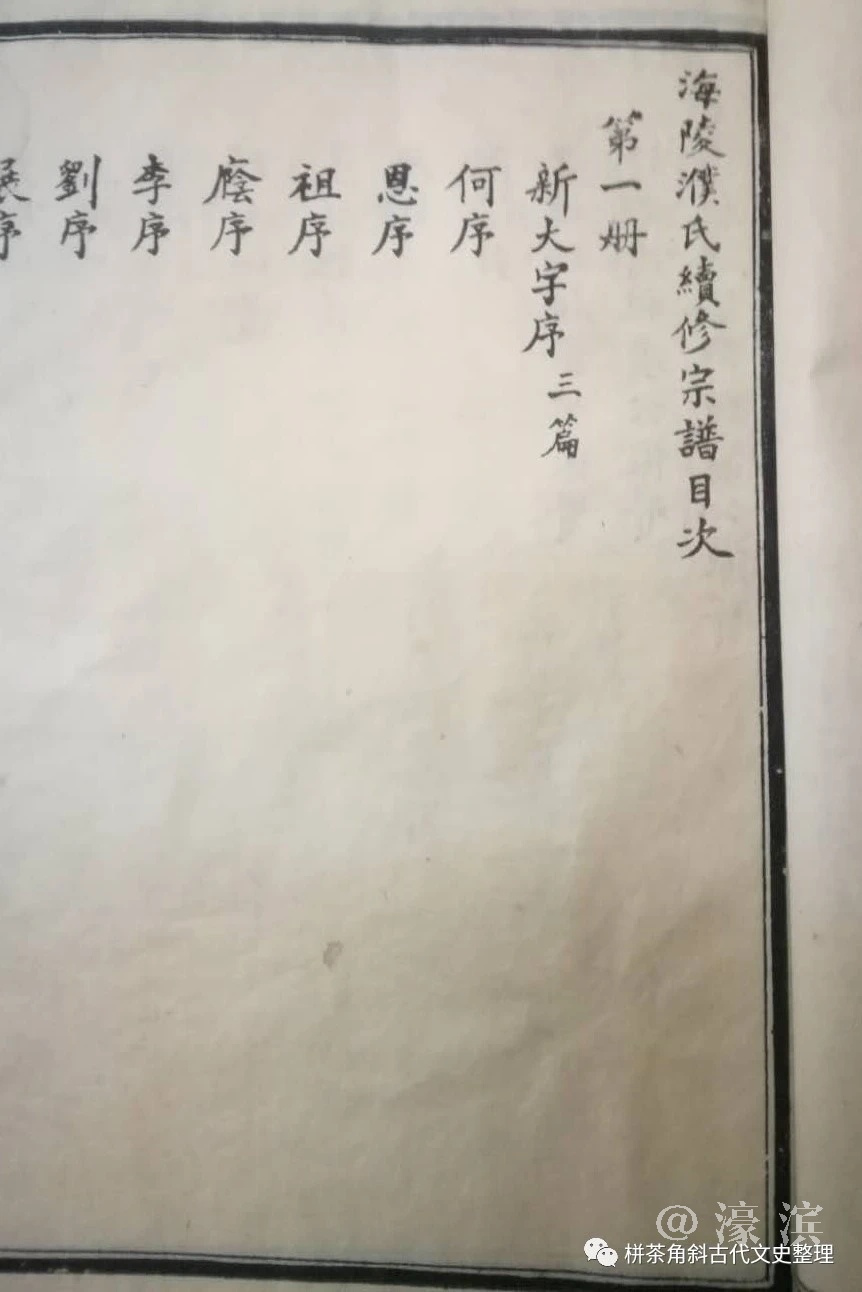 海陵濮氏續修宗譜目次
第一册
新大字序 三篇
何序
恩序
祖序
廕序
李序
劉序
序
@濠滨
栟茶角斜古代文史整理